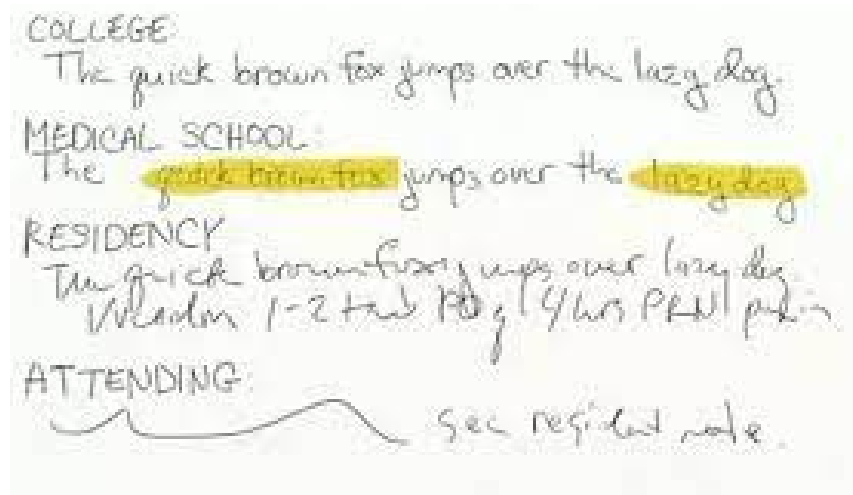 COLLEGE
The quick brown fox jumps over the lazy dog.
MEDICAL SCHOOL:
The quick brown fox jumps over the lazy dog
RESIDENCY
The quick brown fox jumps over lazy dog.
1-2 tab PO q 4 hrs PRN pain
ATTENDING:
see resident note.